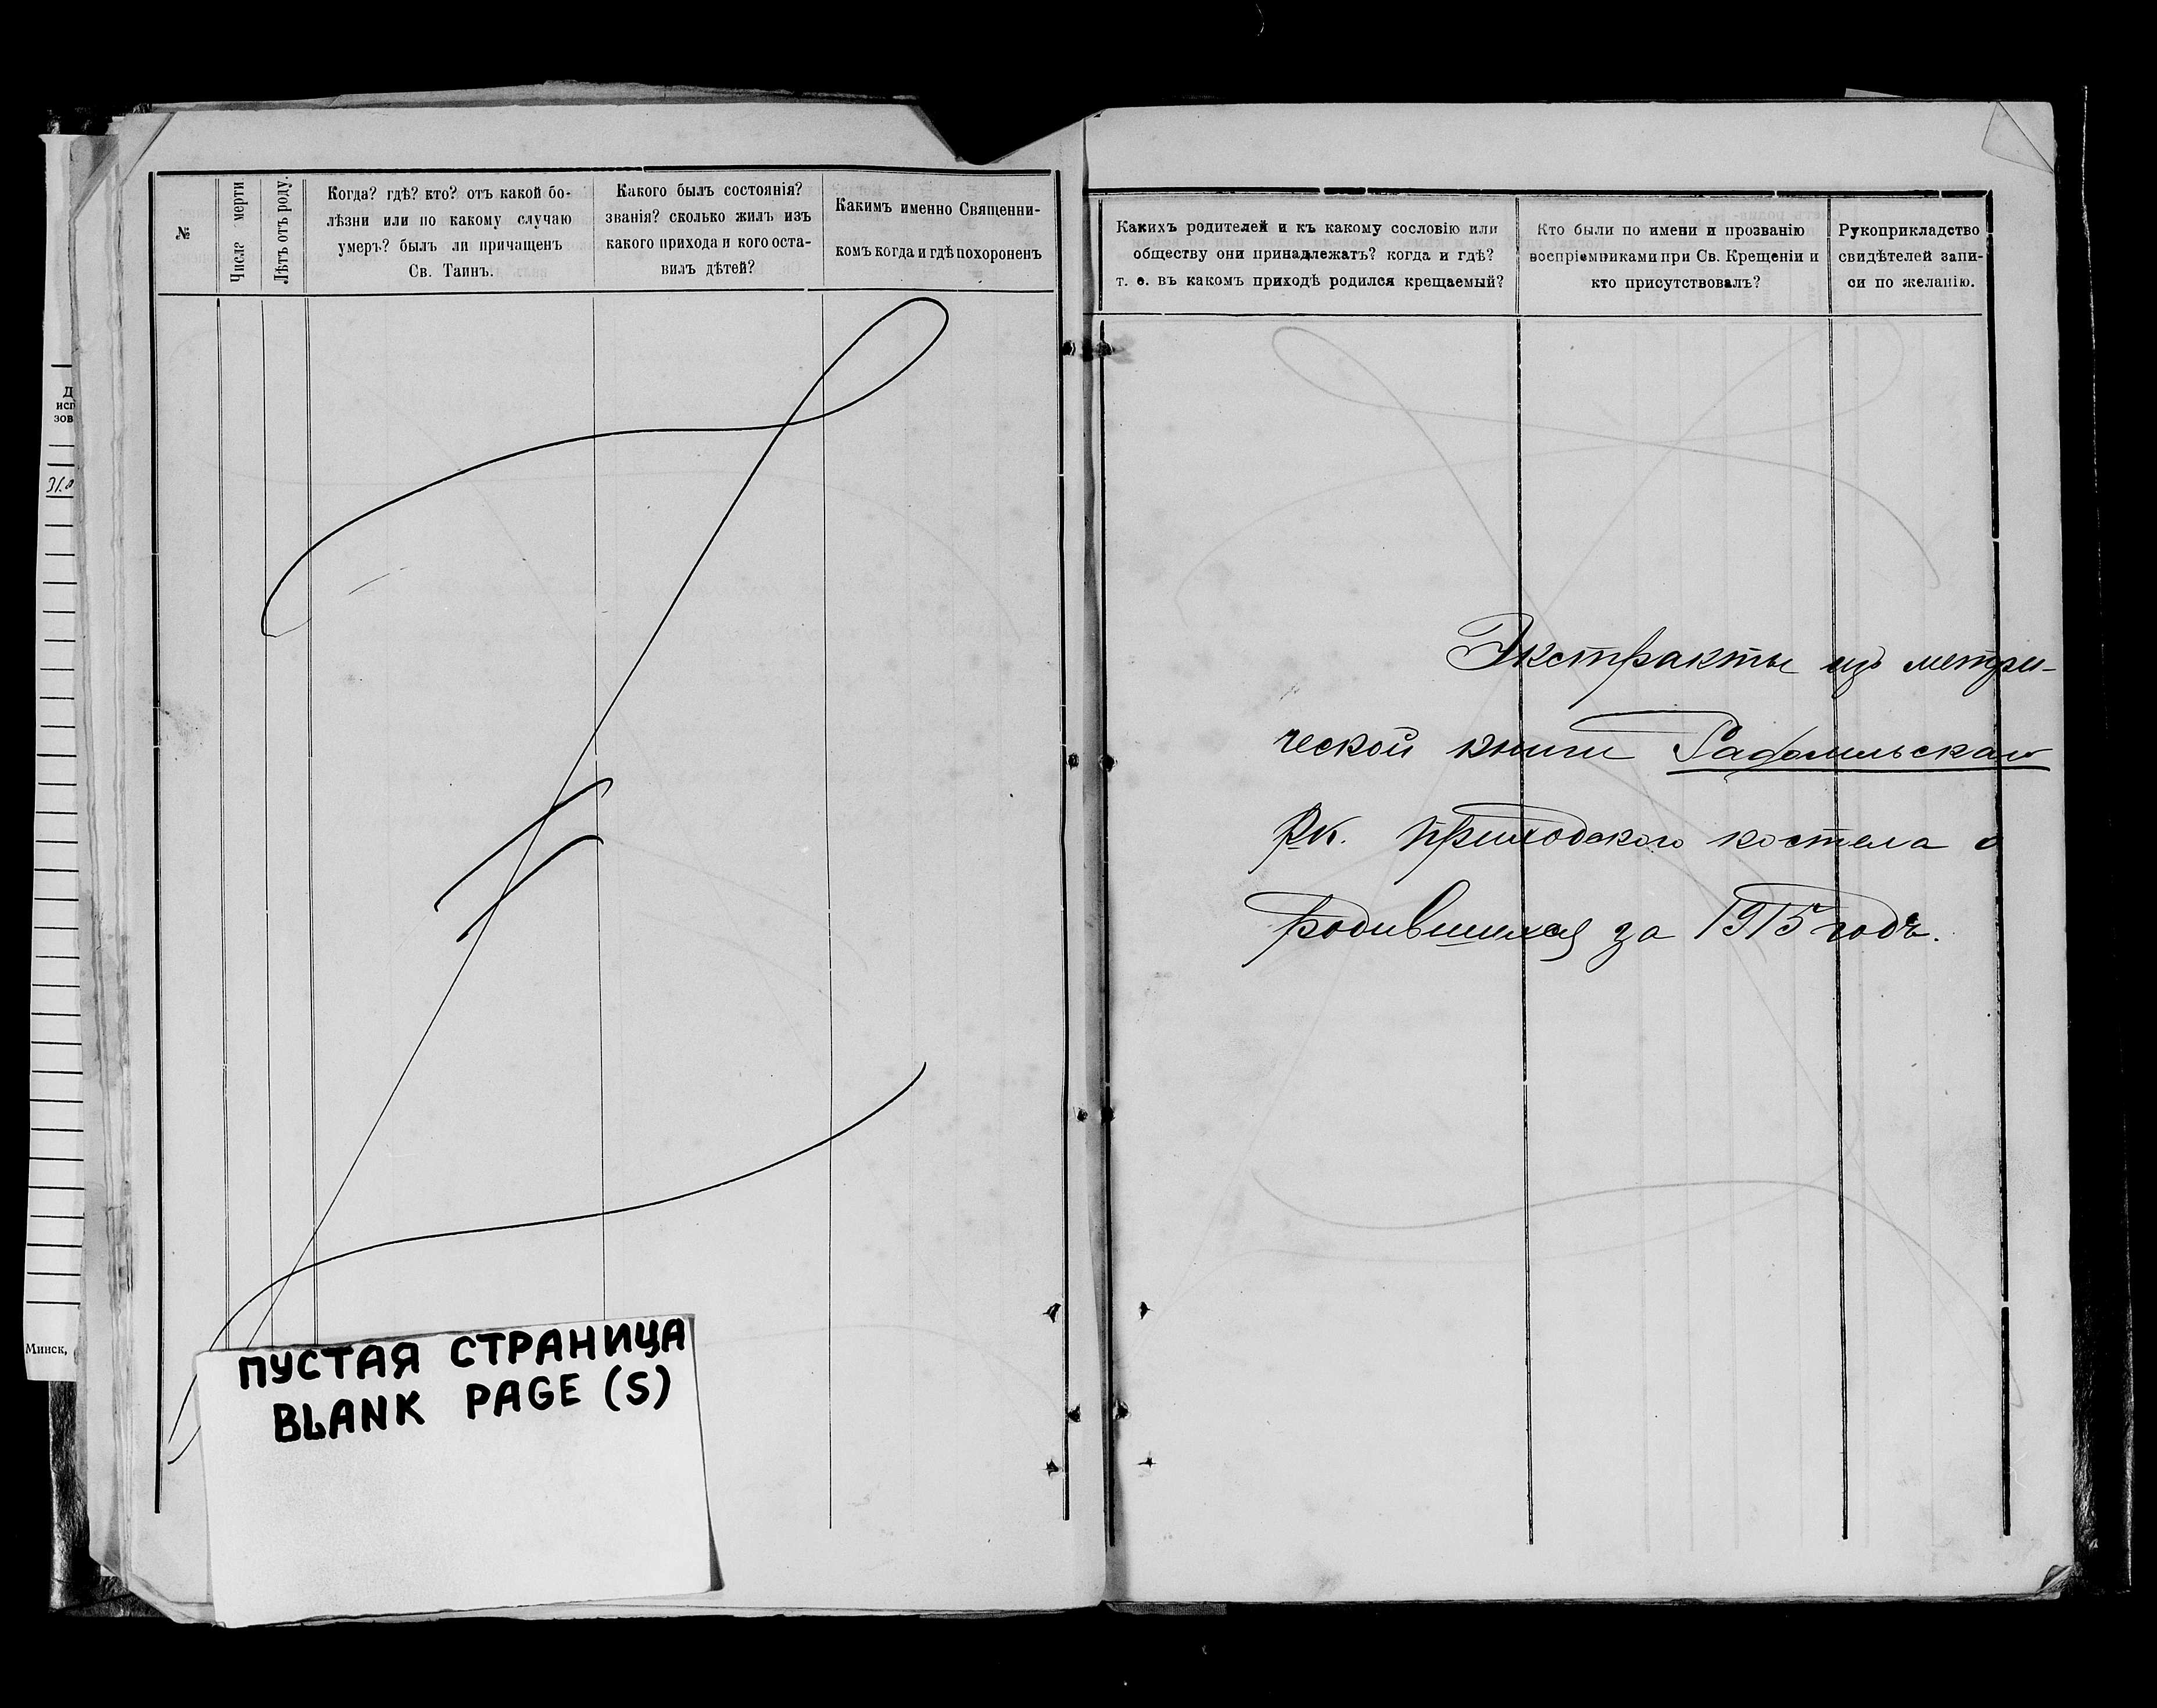 №
Числа мерти
Лѣтъ отъ роду.
Когда? гдѣ? кто? отъ какой бо-
лѣзни или по какому случаю
умеръ? былъ ли причащенъ
Св. Таинъ.
Какого былъ состоянія?
званія? сколько жилъ изъ
какого прихода и кого оста-
вилъ дѣтей?
Какимъ именно Священни-
комъ когда и гдѣ похороненъ
ПУСТАЯ СТРАНИЦА
BLANK PAGE (S)
Д
исп
зов
31.
Минск,
Какихъ родителей и къ какому сословію или
обществу они принадлежатъ? когда и гдѣ?
т. е. въ какомъ приходѣ родился крещаемый?
Кто были по имени и прозванію
воспріемниками при Св. Крещеніи и
кто присутствовалъ?
Рукоприкладство
свидѣтелей запи-
си по желанію.
Экстракты изъ метри-
ческой книги Радомльскаго
рк. приходского костела о
родившихся за 1915 годъ.